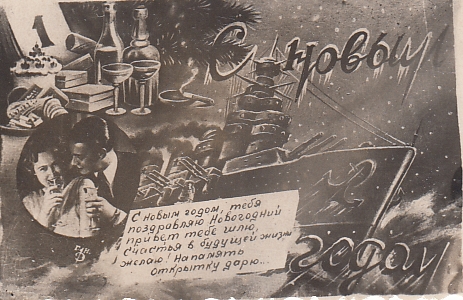 1
С новым
С новым годом, тебя
поздравляю Новогодний
привет тебе шлю,
Счастья в будущей жизни
желаю! На память
открытку дарю...
годом